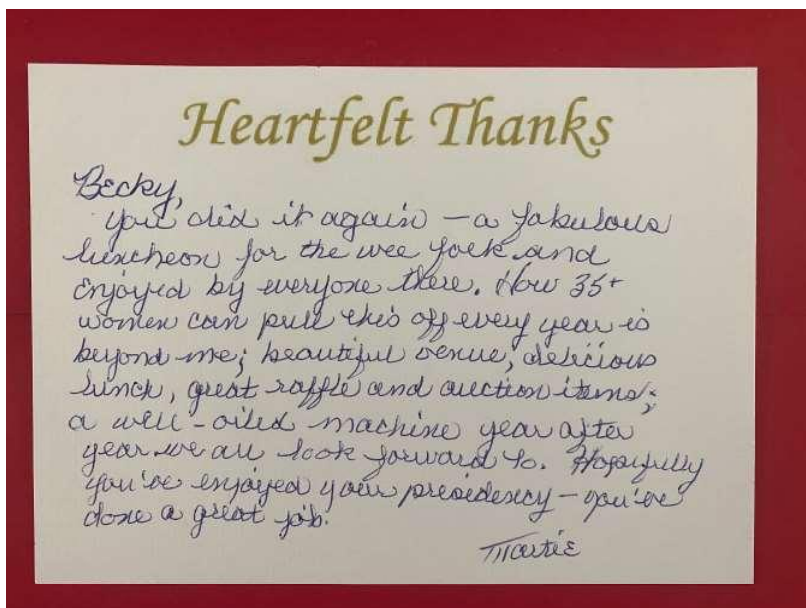 Heartfelt Thanks
Becky,
you did it again - a fabulous
luncheon for the wee folk and
enjoyed by everyone there. How 35+
women can pull this off every year is
beyond me; beautiful venue, delicious
lunch, great raffle and auction items;
a well-oiled machine year after
year we all look forward to. Hopefully
you've enjoyed your presidency - you've
done a great job.
Martie